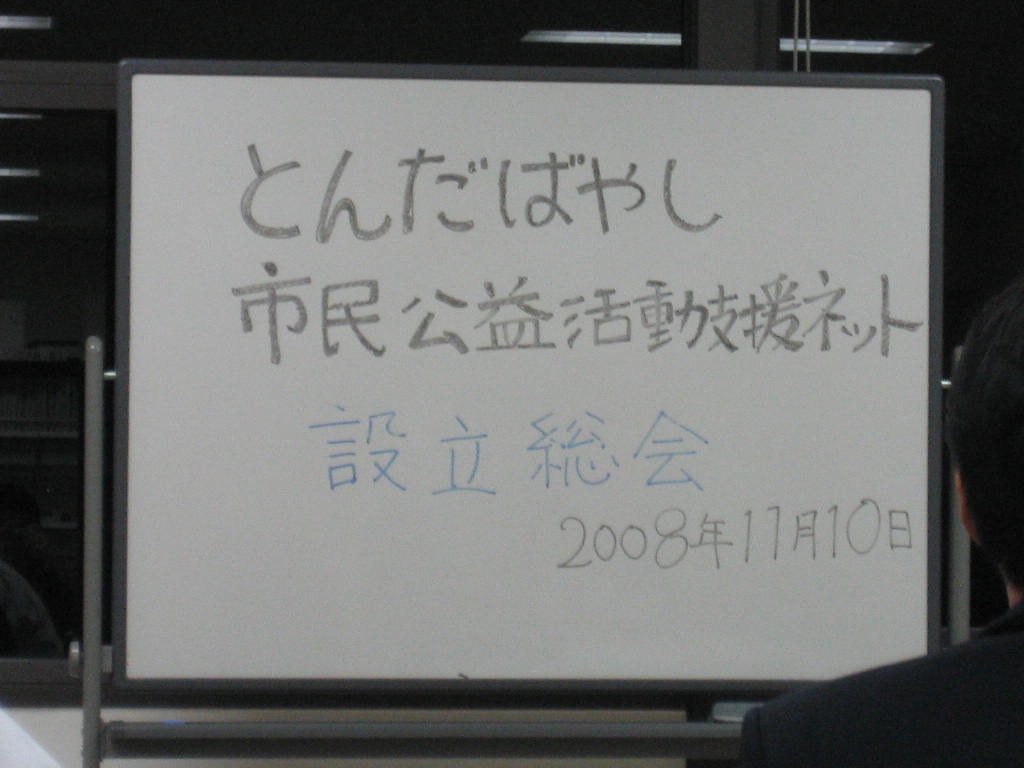 とんだばやし
市民公益活動支援ネット
設立総会
2008年11月10日